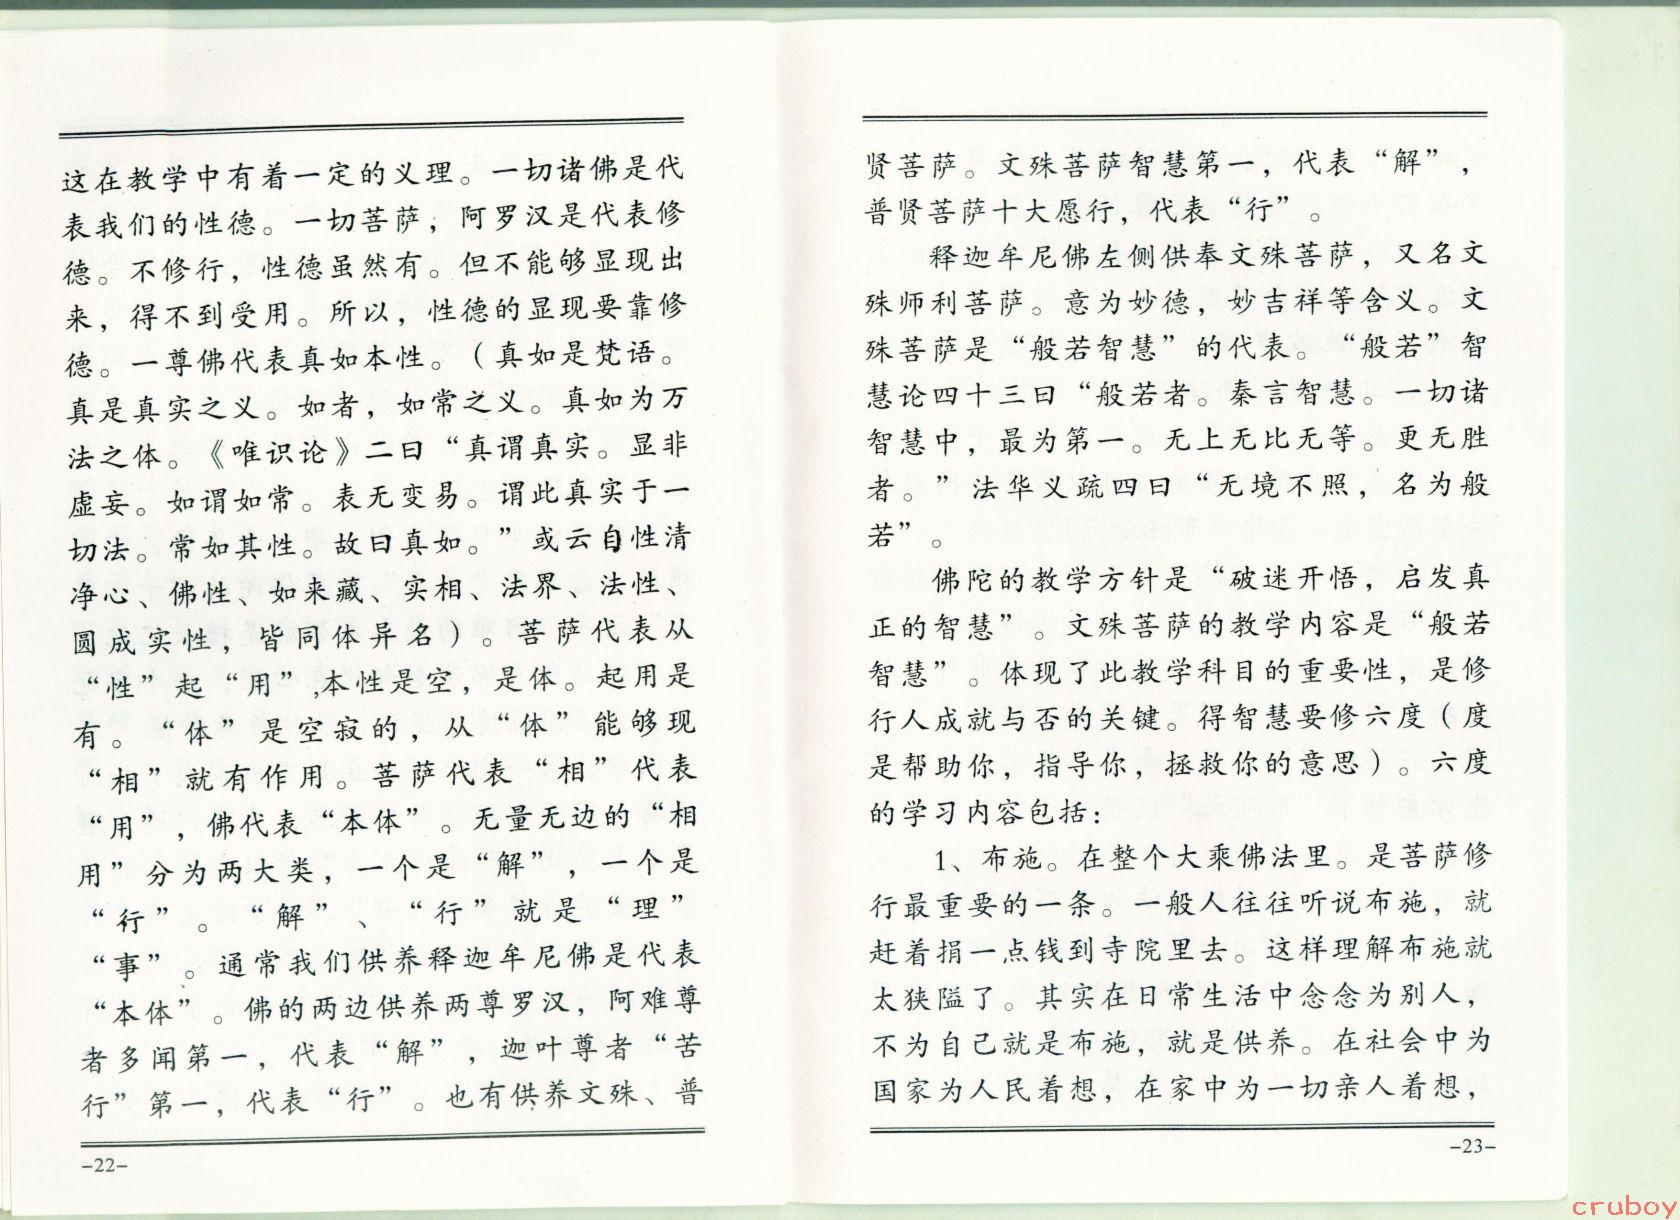 这在教学中有着一定的义理。一切诸佛是代
表我们的性德。一切菩萨，阿罗汉是代表修
德。不修行，性德虽然有。但不能够显现出
来，得不到受用。所以，性德的显现要靠修
德。一尊佛代表真如本性。（真如是梵语。
真是真实之义。如者，如常之义。真如为万
法之体。《唯识论》二曰“真谓真实。显非
虚妄。如谓如常。表无变易。谓此真实于一
切法。常如其性。故曰真如。”或云自性清
净心、佛性、如来藏、实相、法界、法性、
圆成实性，皆同体异名）。菩萨代表从
“性”起“用”,本性是空，是体。起用是
有。“体”是空寂的，从“体”能够现
“相”就有作用。菩萨代表“相”代表
“用”，佛代表“本体”。无量无边的“相
用”分为两大类，一个是“解”，一个是
“行”。“解”、“行”就是“理”
“事”。通常我们供养释迦牟尼佛是代表
“本体”。佛的两边供养两尊罗汉，阿难尊
者多闻第一，代表“解”，迦叶尊者“苦
行”第一，代表“行”。也有供养文殊、普
-22-
贤菩萨。文殊菩萨智慧第一，代表“解”，
普贤菩萨十大愿行，代表“行”。
释迦牟尼佛左侧供奉文殊菩萨，又名文
殊师利菩萨。意为妙德，妙吉祥等含义。文
殊菩萨是“般若智慧”的代表。“般若”智
慧论四十三曰“般若者。秦言智慧。一切诸
智慧中，最为第一。无上无比无等。更无胜
者。”法华义疏四曰“无境不照，名为般
若”。
佛陀的教学方针是“破迷开悟，启发真
正的智慧”。文殊菩萨的教学内容是“般若
智慧”。体现了此教学科目的重要性，是修
行人成就与否的关键。得智慧要修六度（度
是帮助你，指导你，拯救你的意思）。六度
的学习内容包括：
1、布施。在整个大乘佛法里。是菩萨修
行最重要的一条。一般人往往听说布施，就
赶着捐一点钱到寺院里去。这样理解布施就
太狭隘了。其实在日常生活中念念为别人，
不为自己就是布施，就是供养。在社会中为
国家为人民着想，在家中为一切亲人着想，
-23-
cruboy